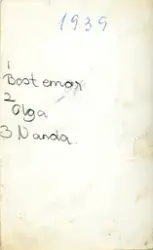 1939
1
Bostemax
2
Olga
3 Nanda.